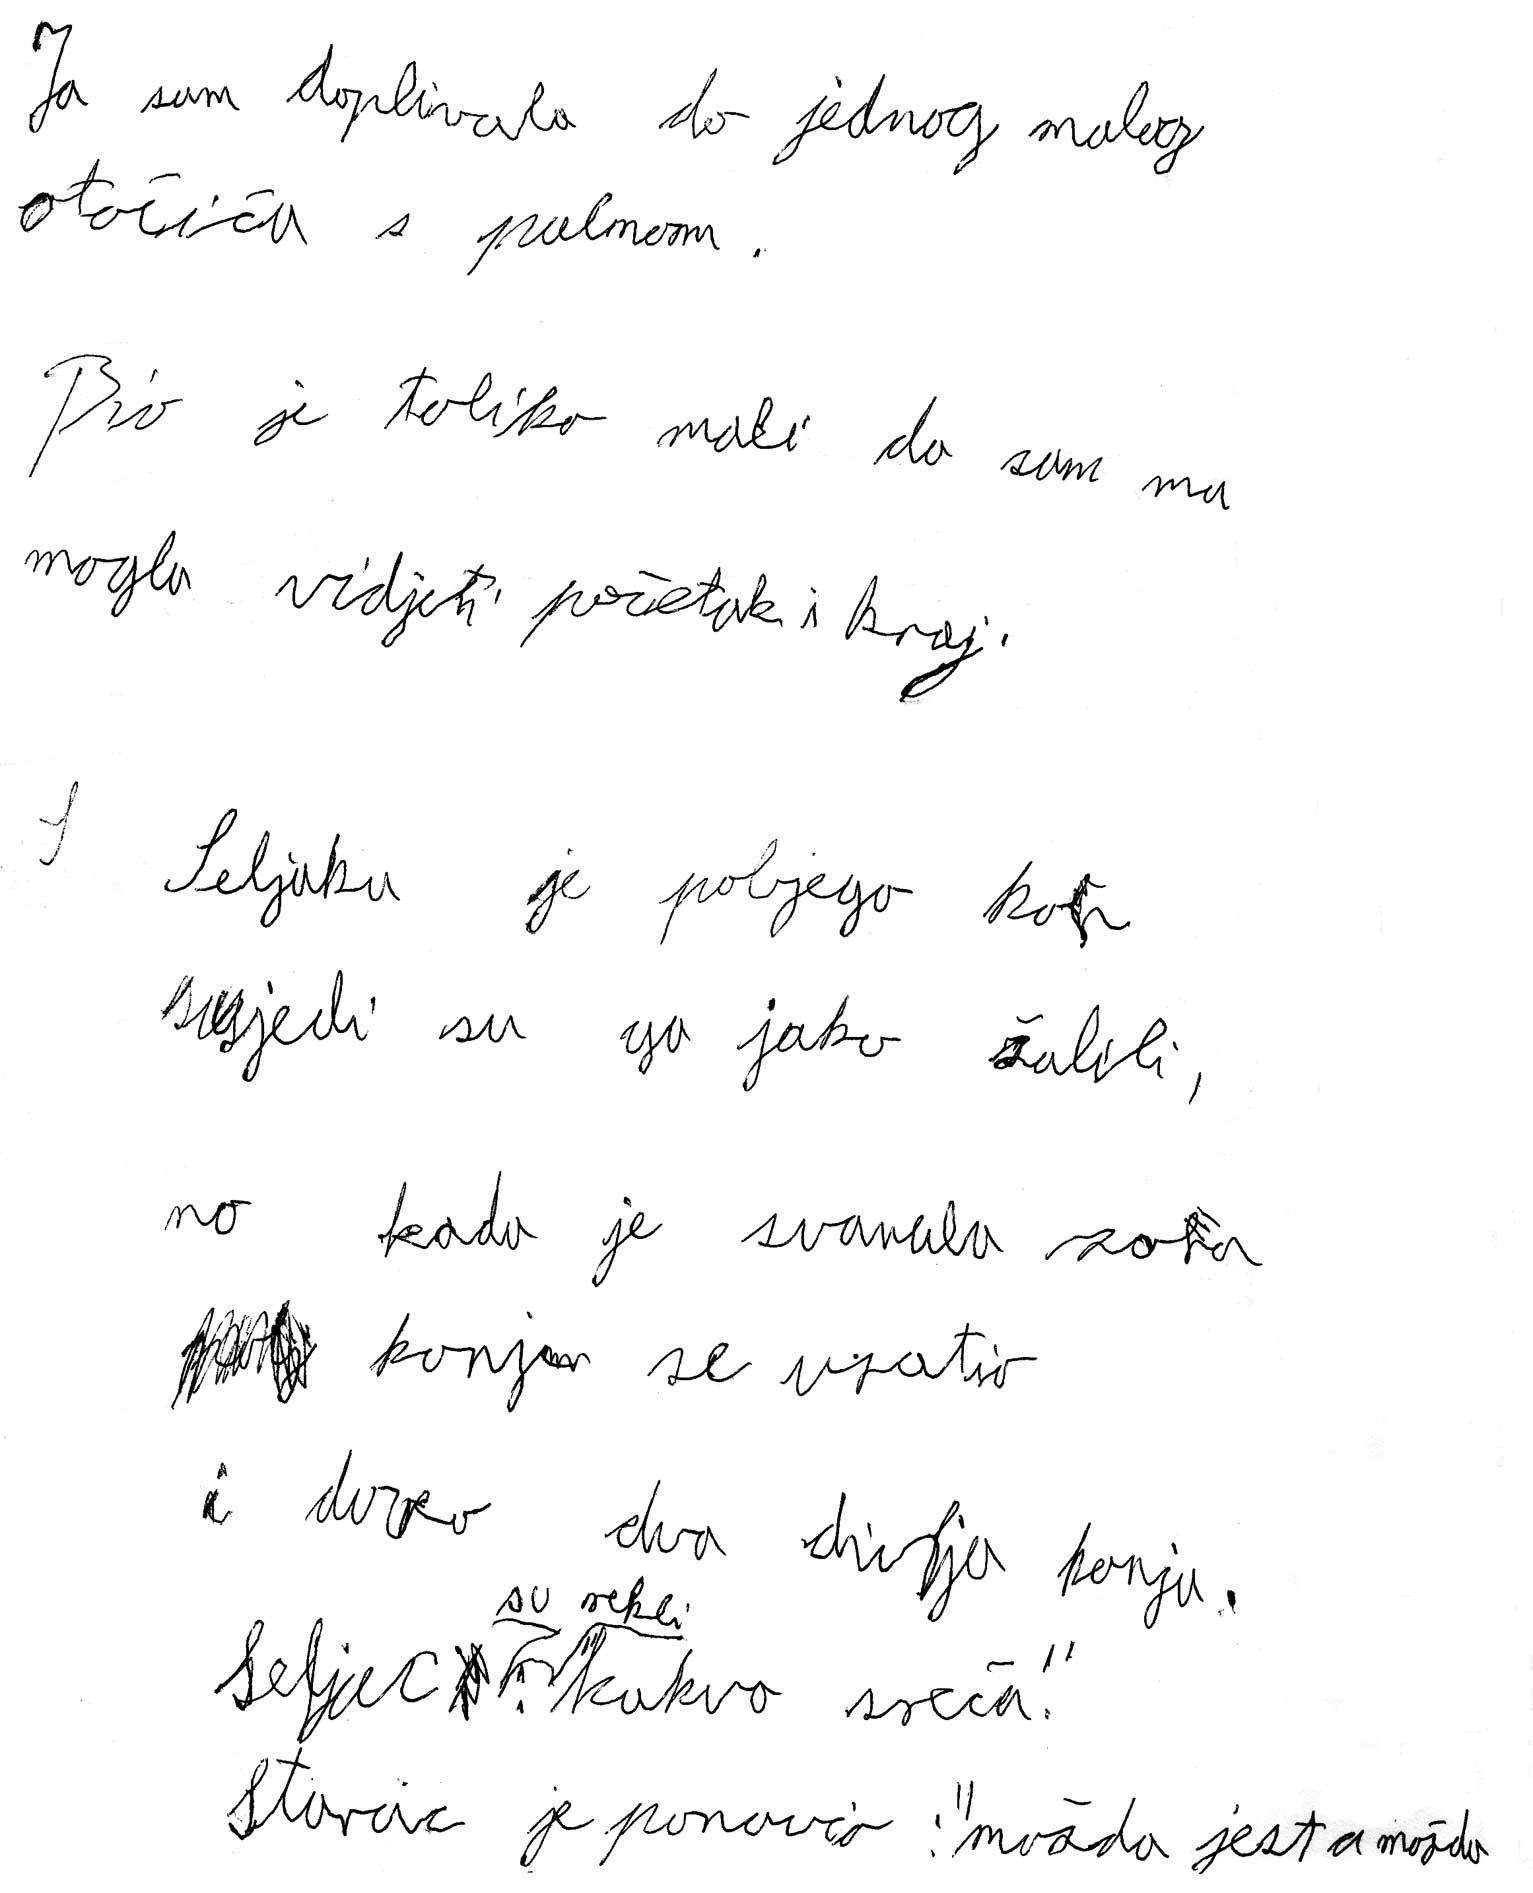 Ja sam doplivala do jednog malog
otočića s palmom.
Bio je toliko mali da sam mu
mogla vidjeti početak i kraj.
S
Seljaku je pobjego koň
susjedi su ga jako žalili,
no kada je svanula zora
konj se vratio
i doveo dva divlja konja.
su rekli
Seljac : "kakvo sreća!"
Starac je ponovio : "možda jest a možda